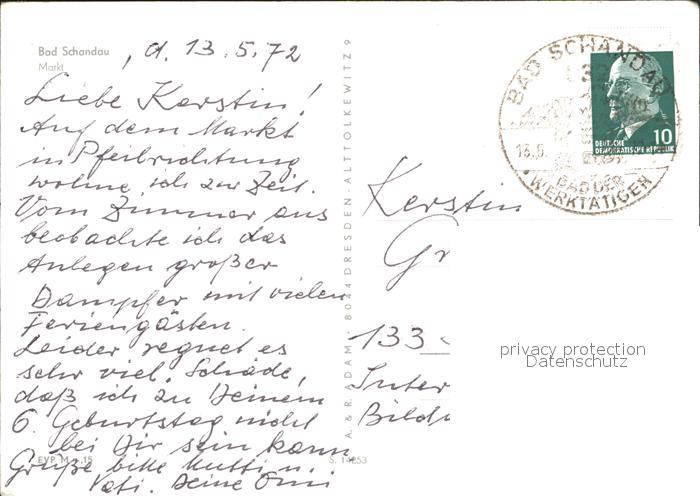 Bad Schandau
Markt
, d. 13.5.72
Liebe Kerstin!
Auf dem Markt
in Pfeilrichtung
wohne ich zur Zeit.
Vom Zimmer aus
beobachte ich das
Anlegen großer
Dampfer mit vielen
Feriengästen.
Leider regnet es
sehr viel. Schade,
daß ich zu Deinem
6. Geburtstag nicht
bei Dir sein kann.
Grüße bitte Mutti u.
Vati. Deine Omi
EVP M
S. 14253
A. & R. ADAM · 8044 DRESDEN - ALTTOLKEWITZ 9
BAD SCHANDAU
13.5.
BAD DER
WERKTÄTIGEN
10
DEUTSCHE
DEMOKRATISCHE REPUBLIK
Kerstin
Gr
133
Inter
Bild
privacy protection
Datenschutz